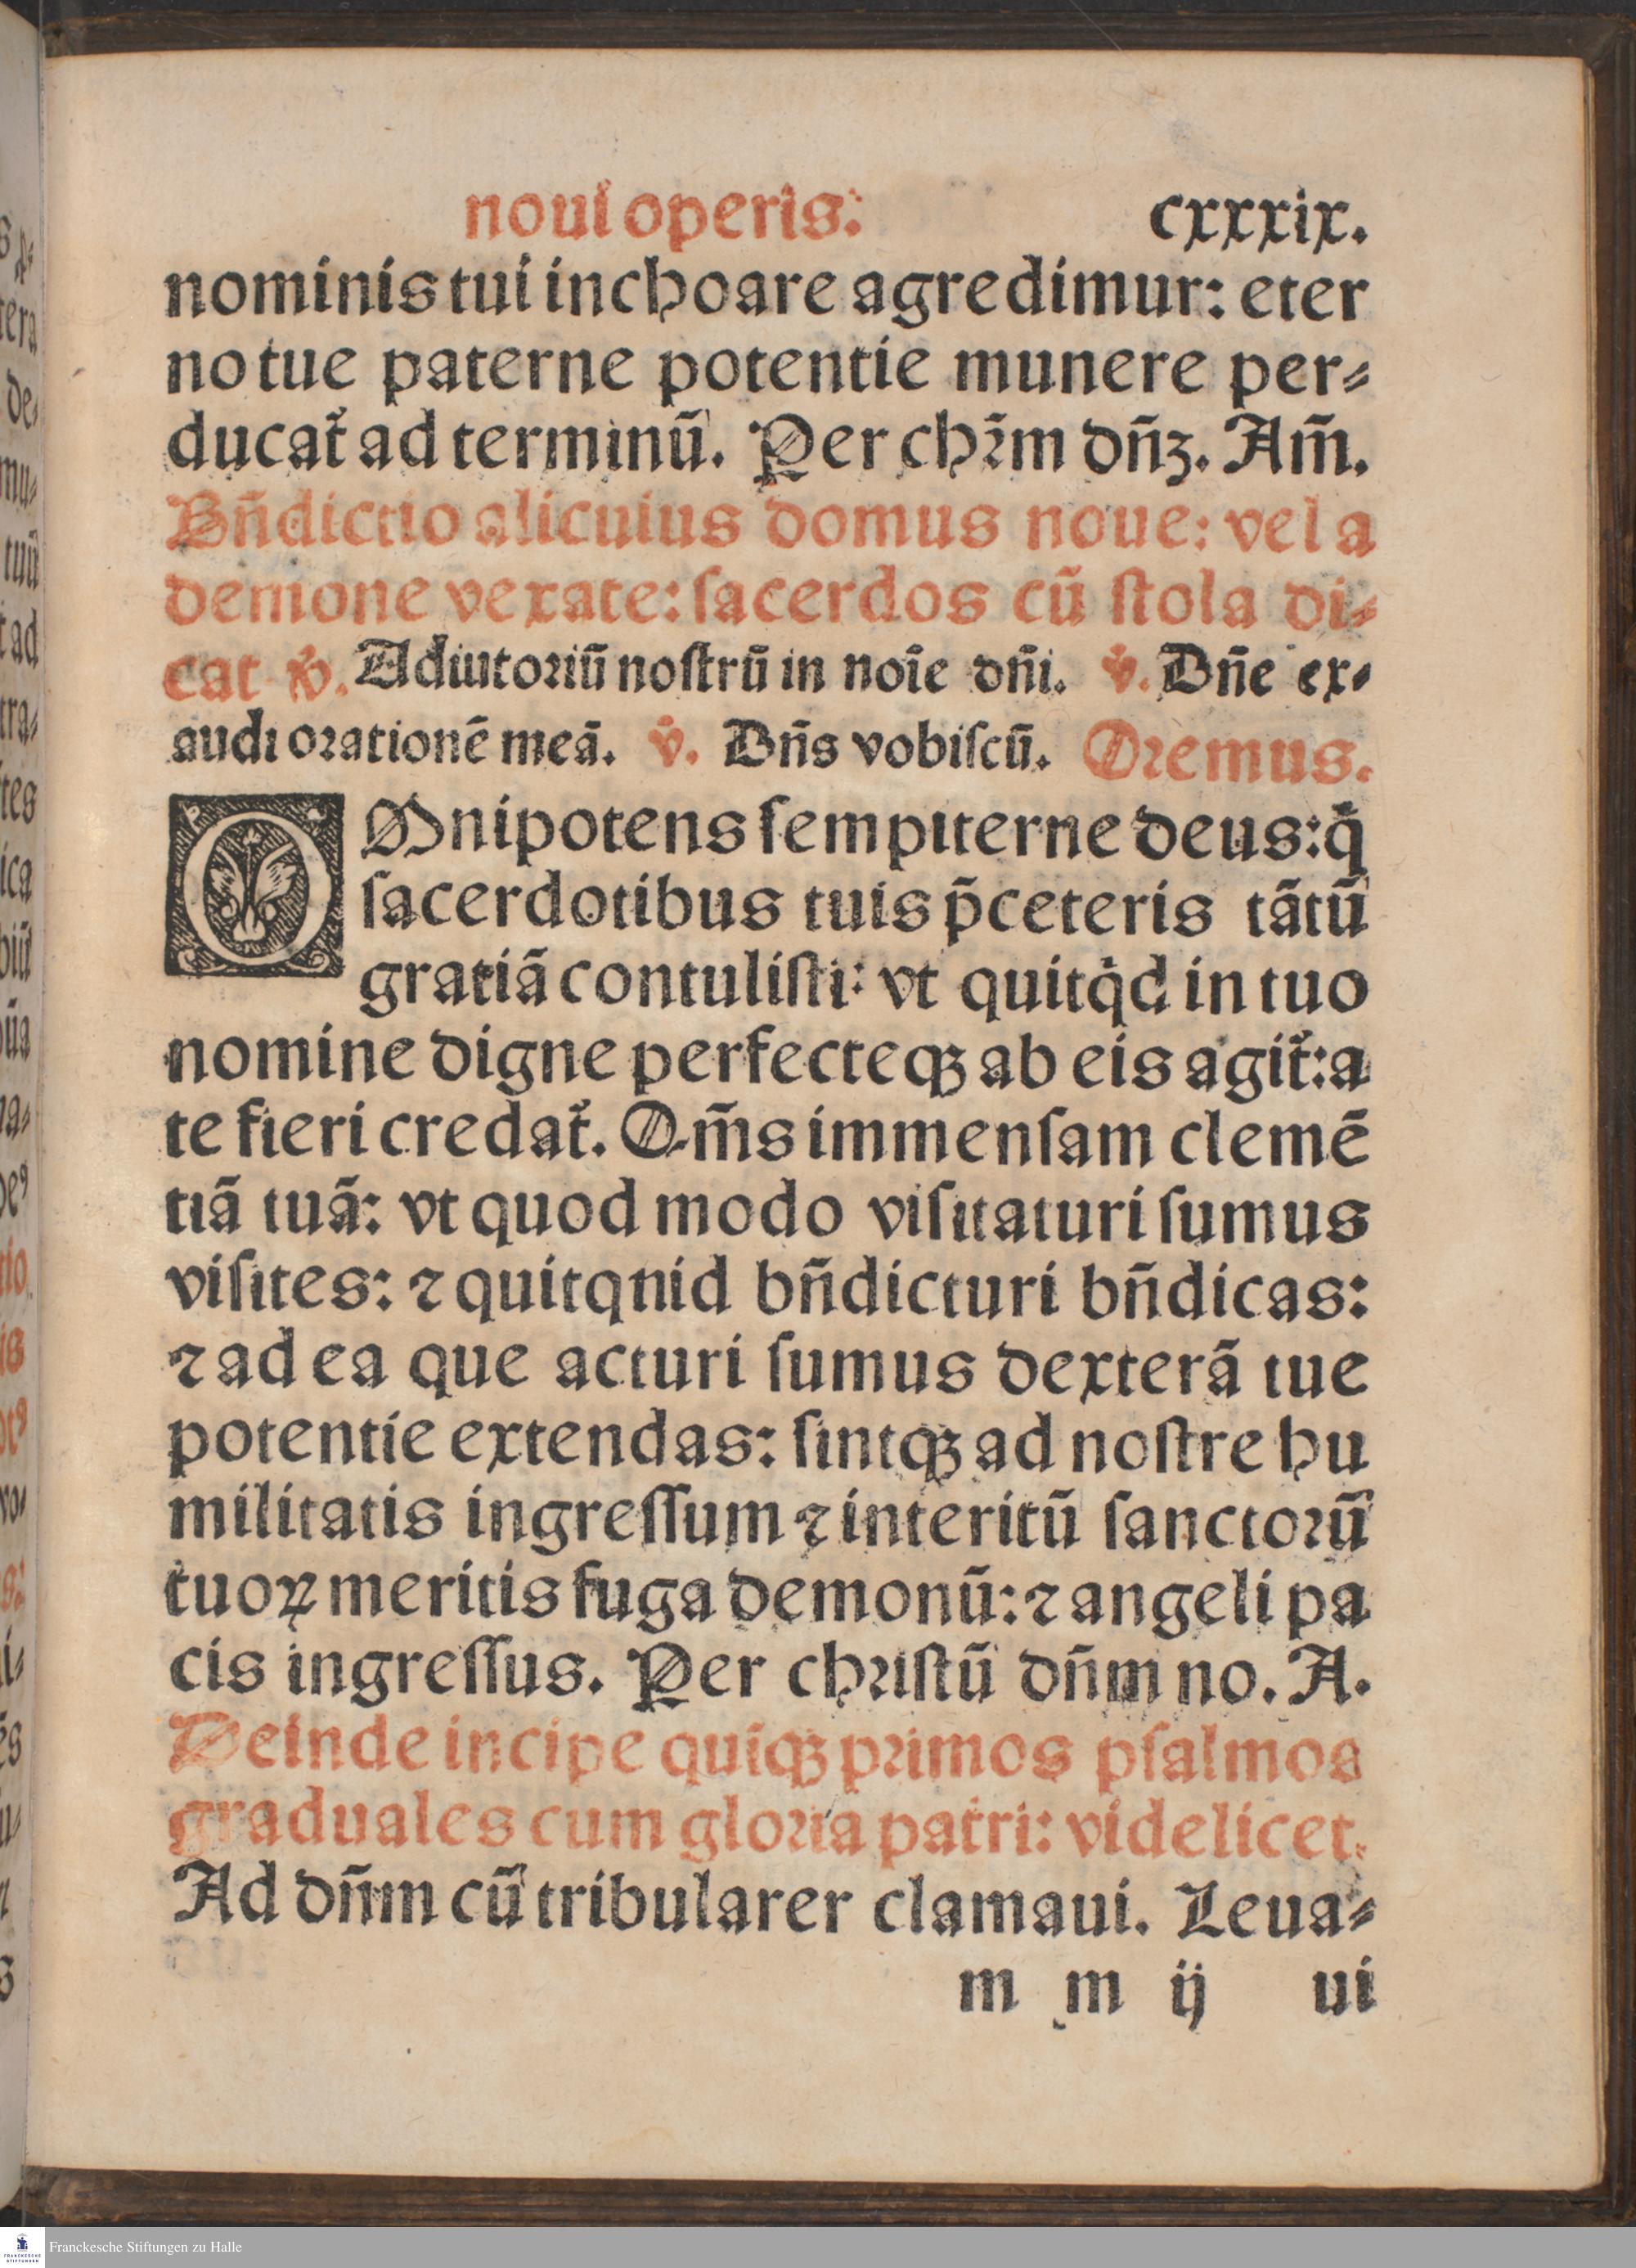 noui operis: cxxxix.
nominis tui inchoare agredimur: eter
no tue paterne potentie munere per⸗
ducat᷑ ad terminū. Per chꝛ̄m dñꝫ. Am̄.
Bñdictio alicuius domus noue: vel a
demone vexate: ſacerdos cū ſtola di⸗
cat ℣. Adiutoꝛiū noſtrū in noīe dñi. ℣. Dñe ex⸗
audi oꝛationē meā. ℣. Dñs vobiſcū. Oꝛemus.
OMnipotens ſempiterne deus: q̇
ſacerdotibus tuis p̄ceteris tātū
gratiā contuliſti: vt quitq̇d in tuo
nomine digne perfecteqꝫ ab eis agit᷑: a
te fieri credat᷑. Om̄s immenſam clemē
tiā tuā: vt quod modo viſitaturi ſumus
viſites: ⁊ quitqnid bñdicturi bñdicas:
⁊ ad ea que acturi ſumus dexterā tue
potentie extendas: ſintqꝫ ad noſtre hu
militatis ingreſſum ⁊ interitū ſanctoꝛū
tuoꝝ meritis fuga demonū: ⁊ angeli pa
cis ingreſſus. Per chꝛiſtū dñm no. A.
Deinde incipe quiqꝫ pꝛimos pſalmos
graduales cum gloꝛia patri: videlicet.
Ad dñm cū tribularer clamaui. Leua⸗
m m ij ui
Franckesche Stiftungen zu Halle